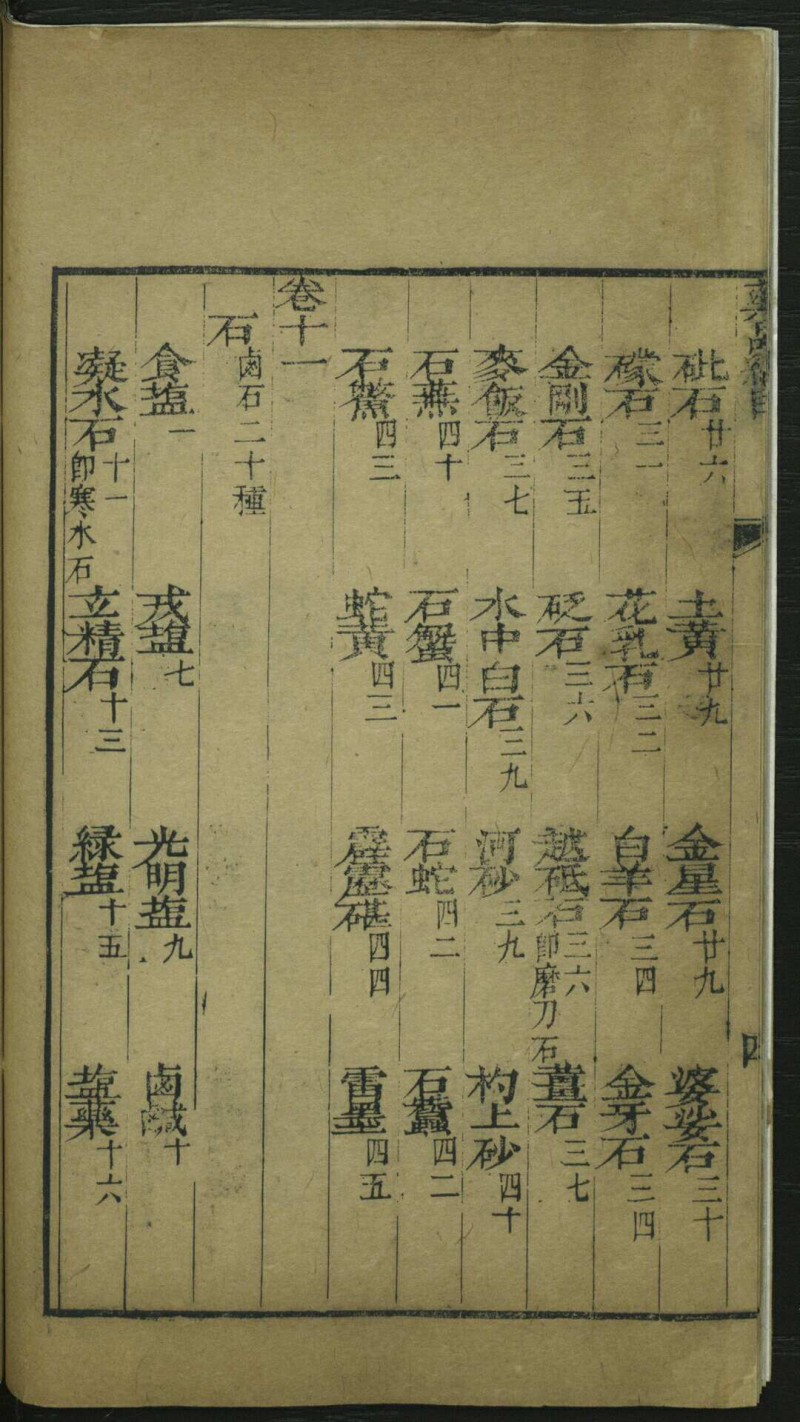 砒石廿六 土黃廿九 金星石廿九 婆娑石三十
礞石三一 花乳石三二 白羊石三四 金牙石三四
金剛石三五 砭石三六 越砥石三六即磨刀石 薑石三七
麥飯石三七 水中白石三九 河砂三九 杓上砂四十
石燕四十 石蟹四一 石蛇四二 石蠶四二
石鱉四三 蛇黃四三 霹靂碪四四 雷墨四五
卷十一
石鹵石二十種
食塩一 戎塩七 光明塩九 鹵鹹十
凝水石十一即寒水石 玄精石十三 緑塩十五 塩藥十六